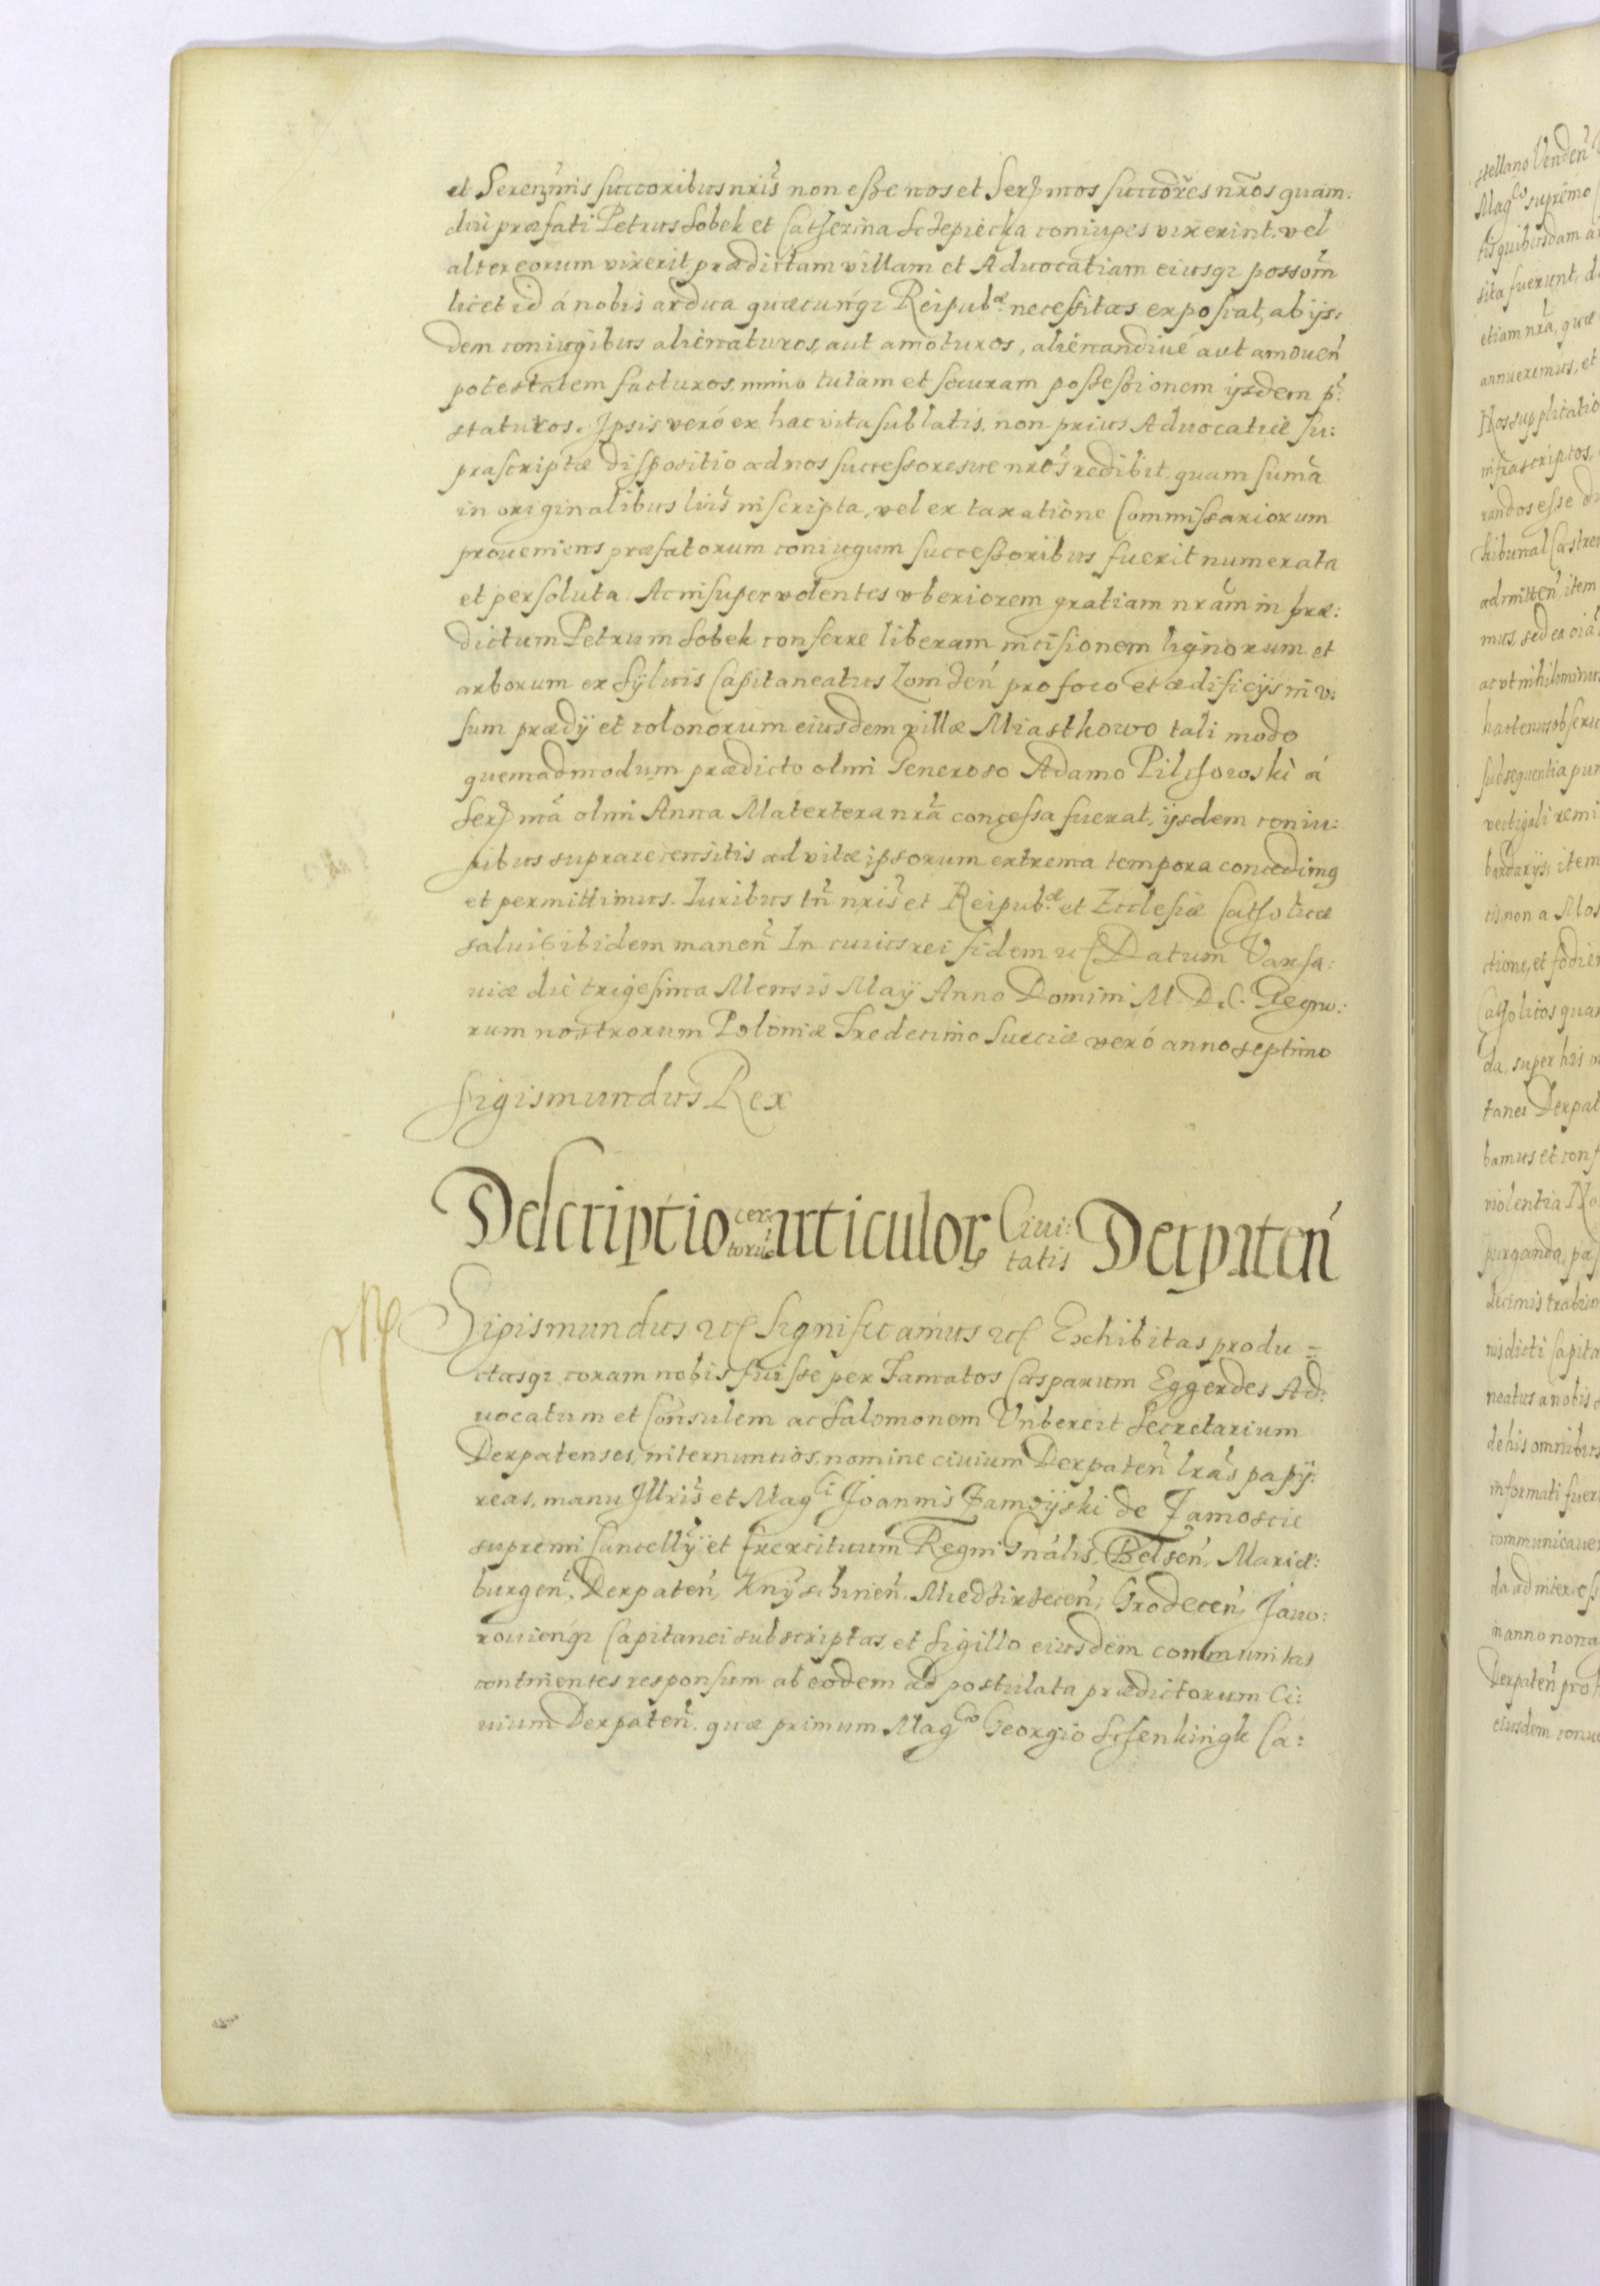 et Serenz̃mis succoribus nr̃is non esse nos et Serz̃mos succor̃es nr̃os quam:
diu præfati Petrus Sobek et Catherina Schepiecka coniuges vixerint, vel
alter eorum vixerit prædictam villam et Aduocatiam eiusq; possom̃
licet id á nobis ardua quæcunq; Reipub.æ necessitas exposcat, ab ijs:
dem coniugibus alienaturos, aut amoturos, alienandiué aut amouen̄
potestatem facturos, immo tutam et securam possessionem ijsdem p̃:
staturos. Ipsis veró ex hac vita sublatis, non prius Aduocatiæ su:
prascriptæ dispositio ad nos successoresue nr̃os redibit, quam sum̃a
in originalibus lr̃is inscripta, vel ex taxatione Commissariorum
proueniens præfatorum coniugum successoribus fuerit numerata
et persoluta. Ac insuper volentes vberiorem gratiam nr̃am in præ:
dictum Petrum Sobek conferre liberam incisionem lignorum et
arborum ex syluis Capitaneatus Lomzen̄ pro foco et ædificijs in v:
sum prædij et colonorum eiusdem villæ Miastkowo tali modo
quemadmodum prædicto olim Generoso Adamo Pilchowski á
Serz̃ma olim Anna Matertera nr̃a concessa fuerat, ijsdem coniu:
gibus suprarecensitis ad vitæ ipsorum extrema tempora concedimus
et permittimus. Iuribus tn̄ nr̃is et Reipub.æ et Ecclesiæ Catholicæ
saluis ibidem manen̄ In cuius rei fidem etc Datum Varsa:
uiæ die trigesima Mensis Maij Anno Domini M. D. C. Regno:
rum nostrorum Poloniæ Tredecimo Sueciæ veró anno septimo
Sigismundus Rex
Descriptio certoru͂ articulor͂ Ciuitatis Derpaten̄
Sigismundus etc Significamus etc Exhibitas produ=
ctasq; coram nobis fuisse per Famatos Casparum Eggerdes Ad:
uocatum et Consulem ac Salomonem Vnbereit Secretarium
Derpatenses, internuncios, nomine ciuium Derpaten̄ lr̃as papy:
reas, manu Illr̃is et Mag.ci Joannis Zamoyski de Zamoscie
supremi Cancellr̃ij et Exercituum Regni Gnális, Belsen̄, Mariæ:
burgen̄, Derpaten̄, Knyschinen̄, Miedzirzecen̄, Grodecen̄, Jauo:
rouienq; Capitanei subscriptas, et Sigillo eiusdem communitas
continentes responsum ab eodem ad postulata prædictorum Ci:
uium Derpaten̄. quæ primum Mag.co Georgio Schenkingk Ca: